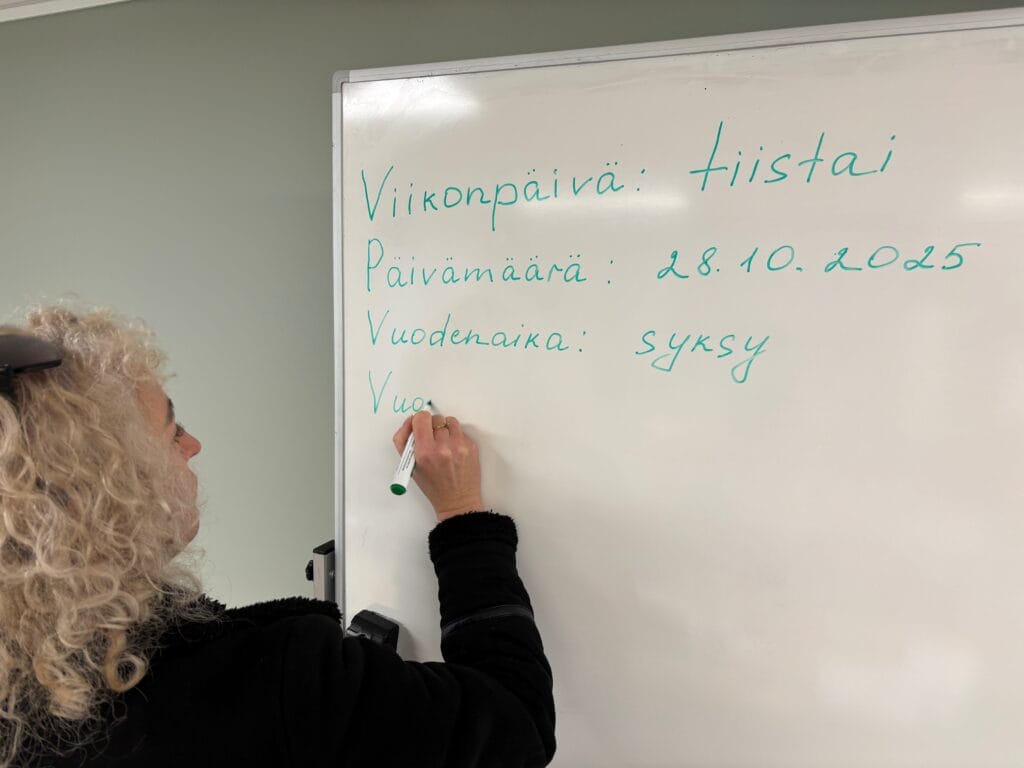 Viikonpäivä: tiistai
Päivämäärä: 28.10.2025
Vuodenaika: syksy
Vuo